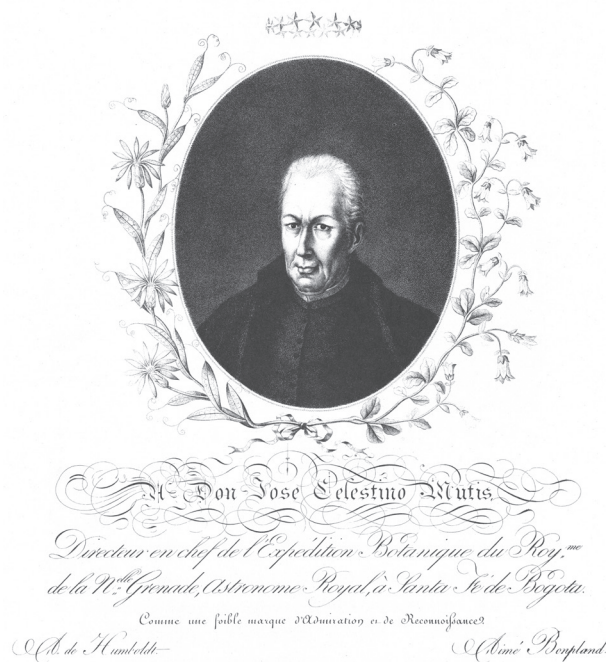 A Don Jose Celestino Mutis,
Directeur en chef de l'Expédition Botanique du Roy.me
de la N.elle Grenade, Astronome Royal, à Santa Fé de Bogota.
Comme une foible marque d'Admiration et de Reconnoiſsance
A. de Humboldt
Aimé Bonpland.